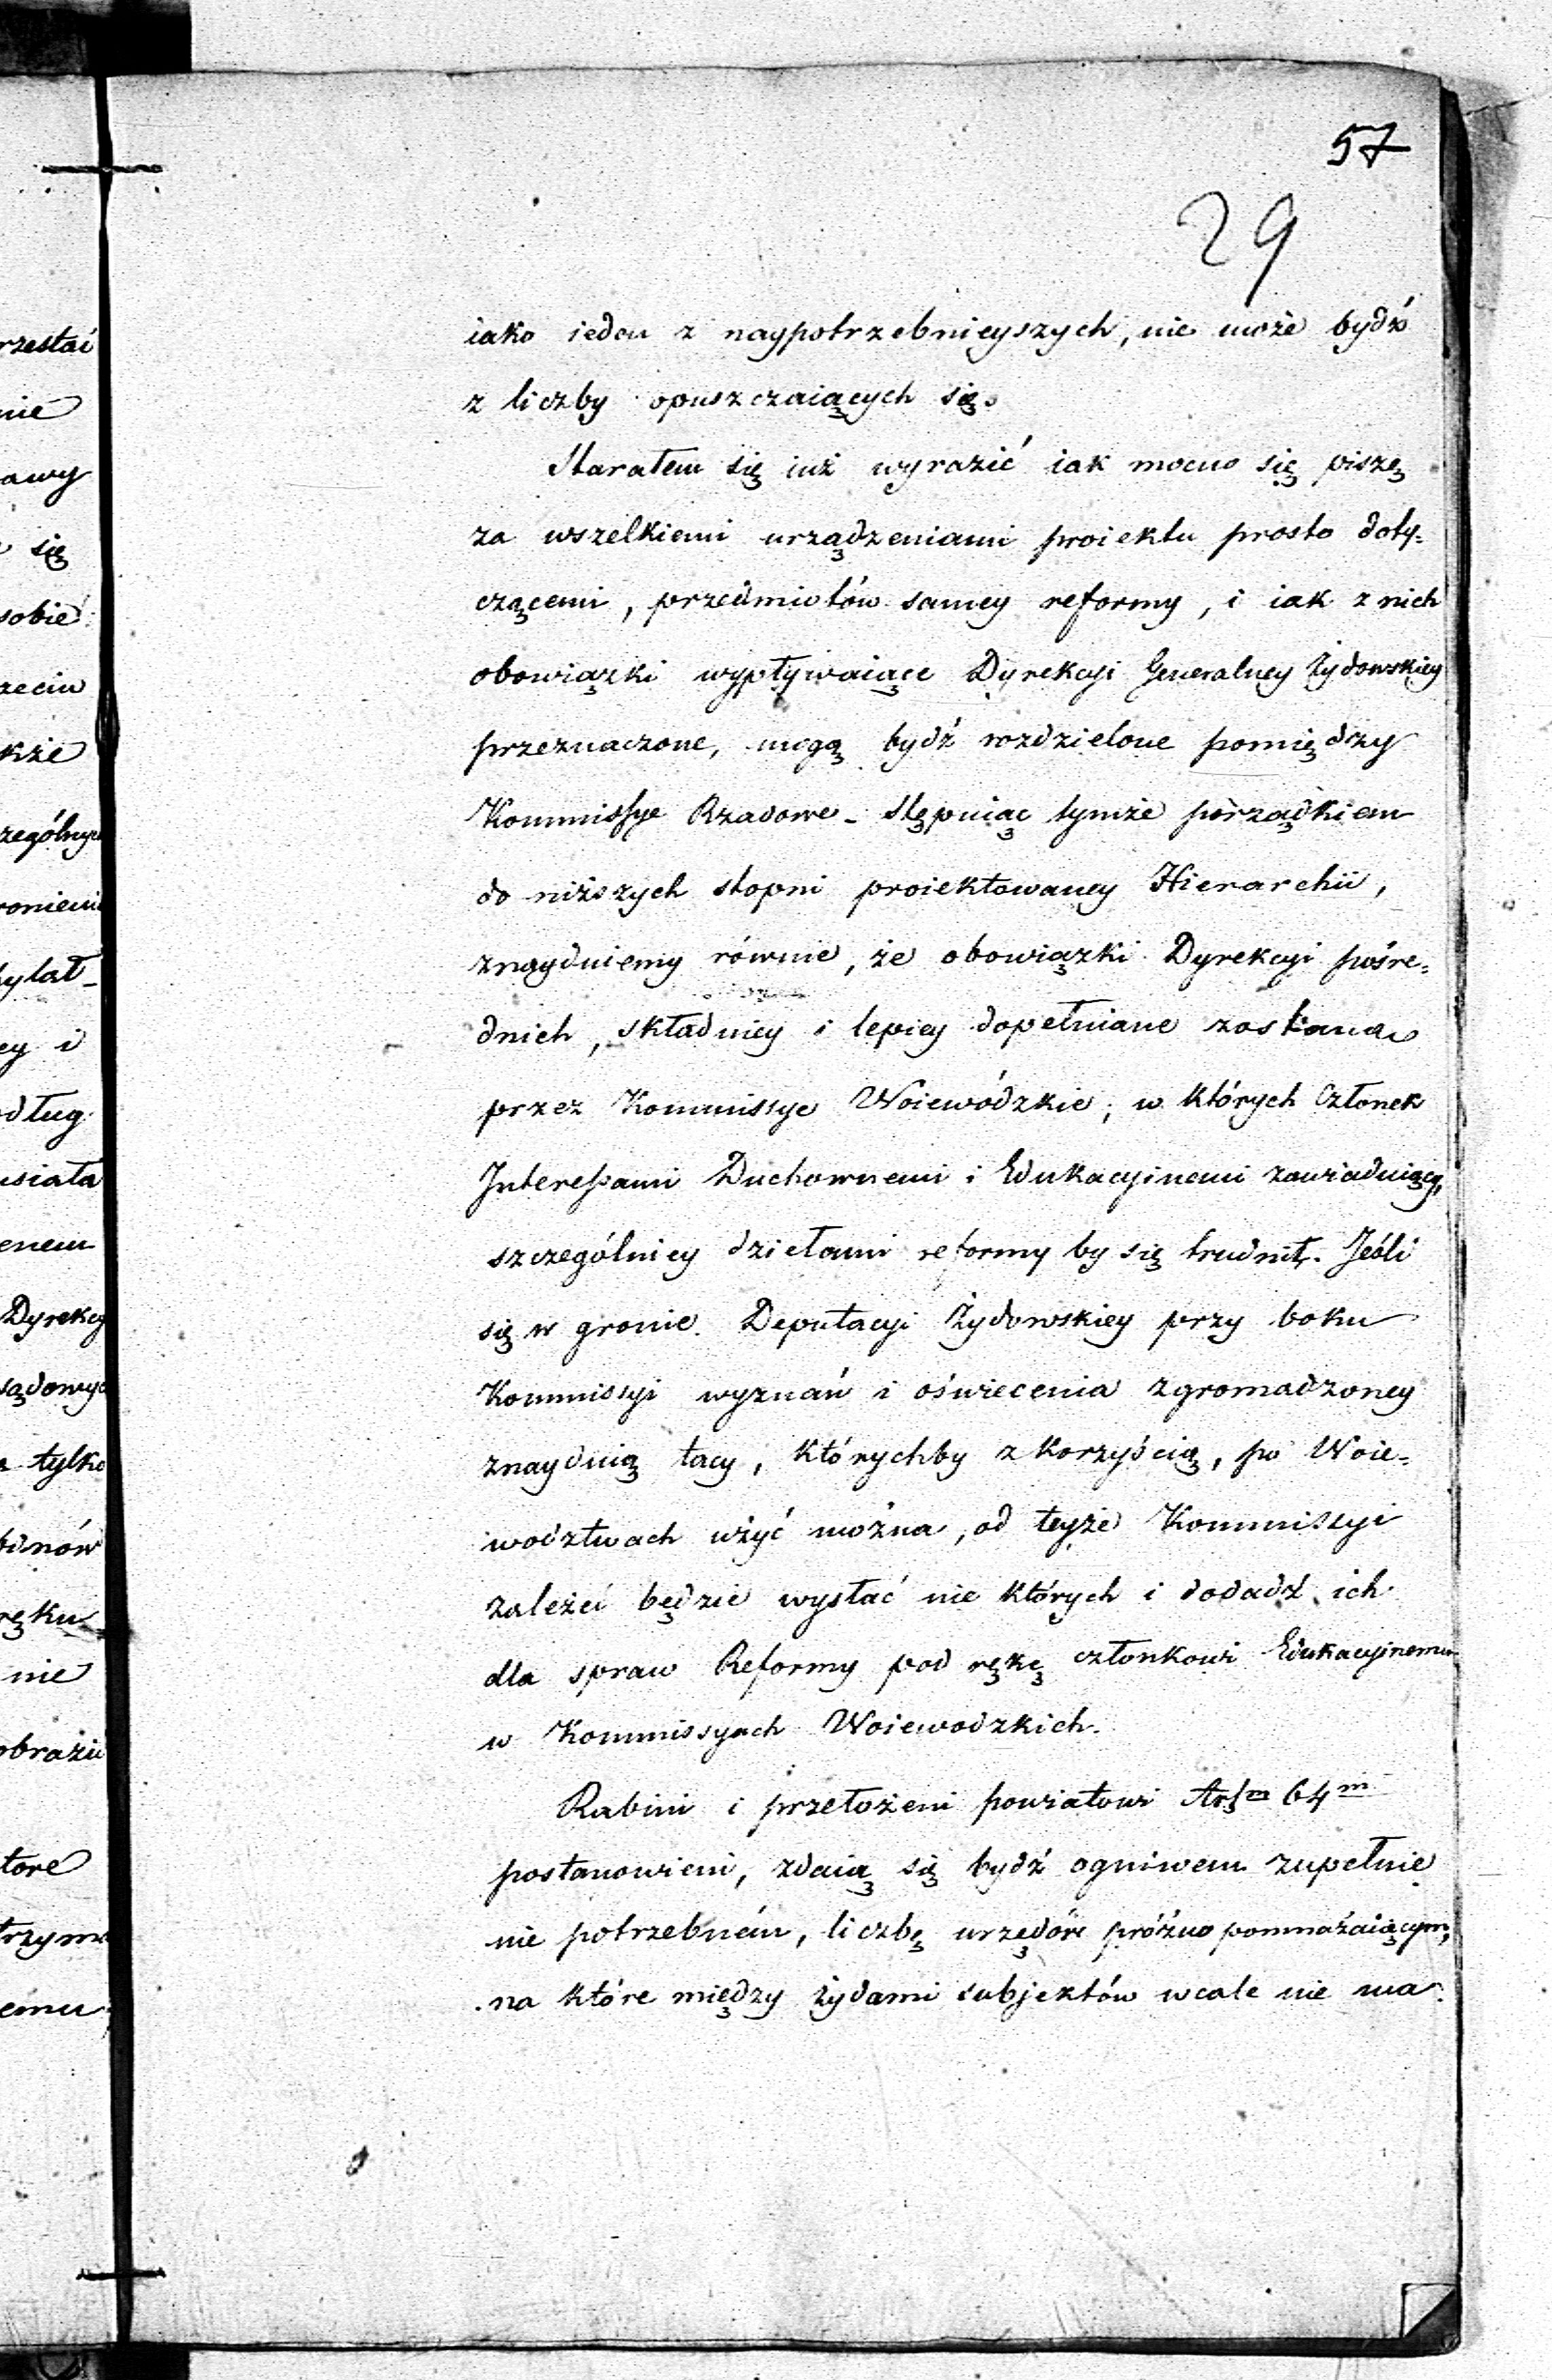 57
29
iako ieden z naypotrzebnieyszych, nie może bydź
z liczby opuszczaiących się.
Starałem się iuż wyrazić iak mocno się piszę
za wszelkiemi urządzeniami proiektu prosto doty=
czącemi, przedmiotów samey reformy, i iak z nich
obowiązki wypływaiące Dyrekcyi Generalney Żydowskiey
przeznaczone, mogą bydź rozdzielone pomiędzy
Kommissye Rządowe - Stępuiąc tymże porządkiem
do niższych stopni proiektowaney Hierarchii,
znaydniemy równie, że obowiązki Dyrekcyi pośre=
dnich, składniey i lepiey dopełniane zostaną
przez Kommissye Woiewódzkie, w których Członek
Interessami Duchownemi i Edukacyinemi zawiaduiący,
szczególniey dziełami reformy by się trudnił. Jeśli
się w gronie Deputacyi Żydowskiey przy boku
Kommissyi wyznań i oświecenia zgromadzoney
znaydują tacy, którychby z korzyścią, po Woie=
wództwach użyć można, od teyże Kommissyi
zależeć będzie wysłać nie których i dodadź ich
dla spraw Reformy pod rękę członkowi Edukacyinemu
w Kommissyach Woiewodzkich.
Rabini i przełożeni powiatowi Artm 64m
postanowieni, zdaią się bydź ogniwem zupełnie
nie potrzebném, liczbę urzędów próżno pomnażaiącym,
na które między żydami subjektów wcale nie ma.
rzestać
nie
awy
się
sobie
zeciw
kże
zególnym
ronieni
bylat
ey i
dług
usiała
enem
Dyrekcy
sądowyc
tylko
binów
ręku
nie
obrazić
tore
trzym
emu